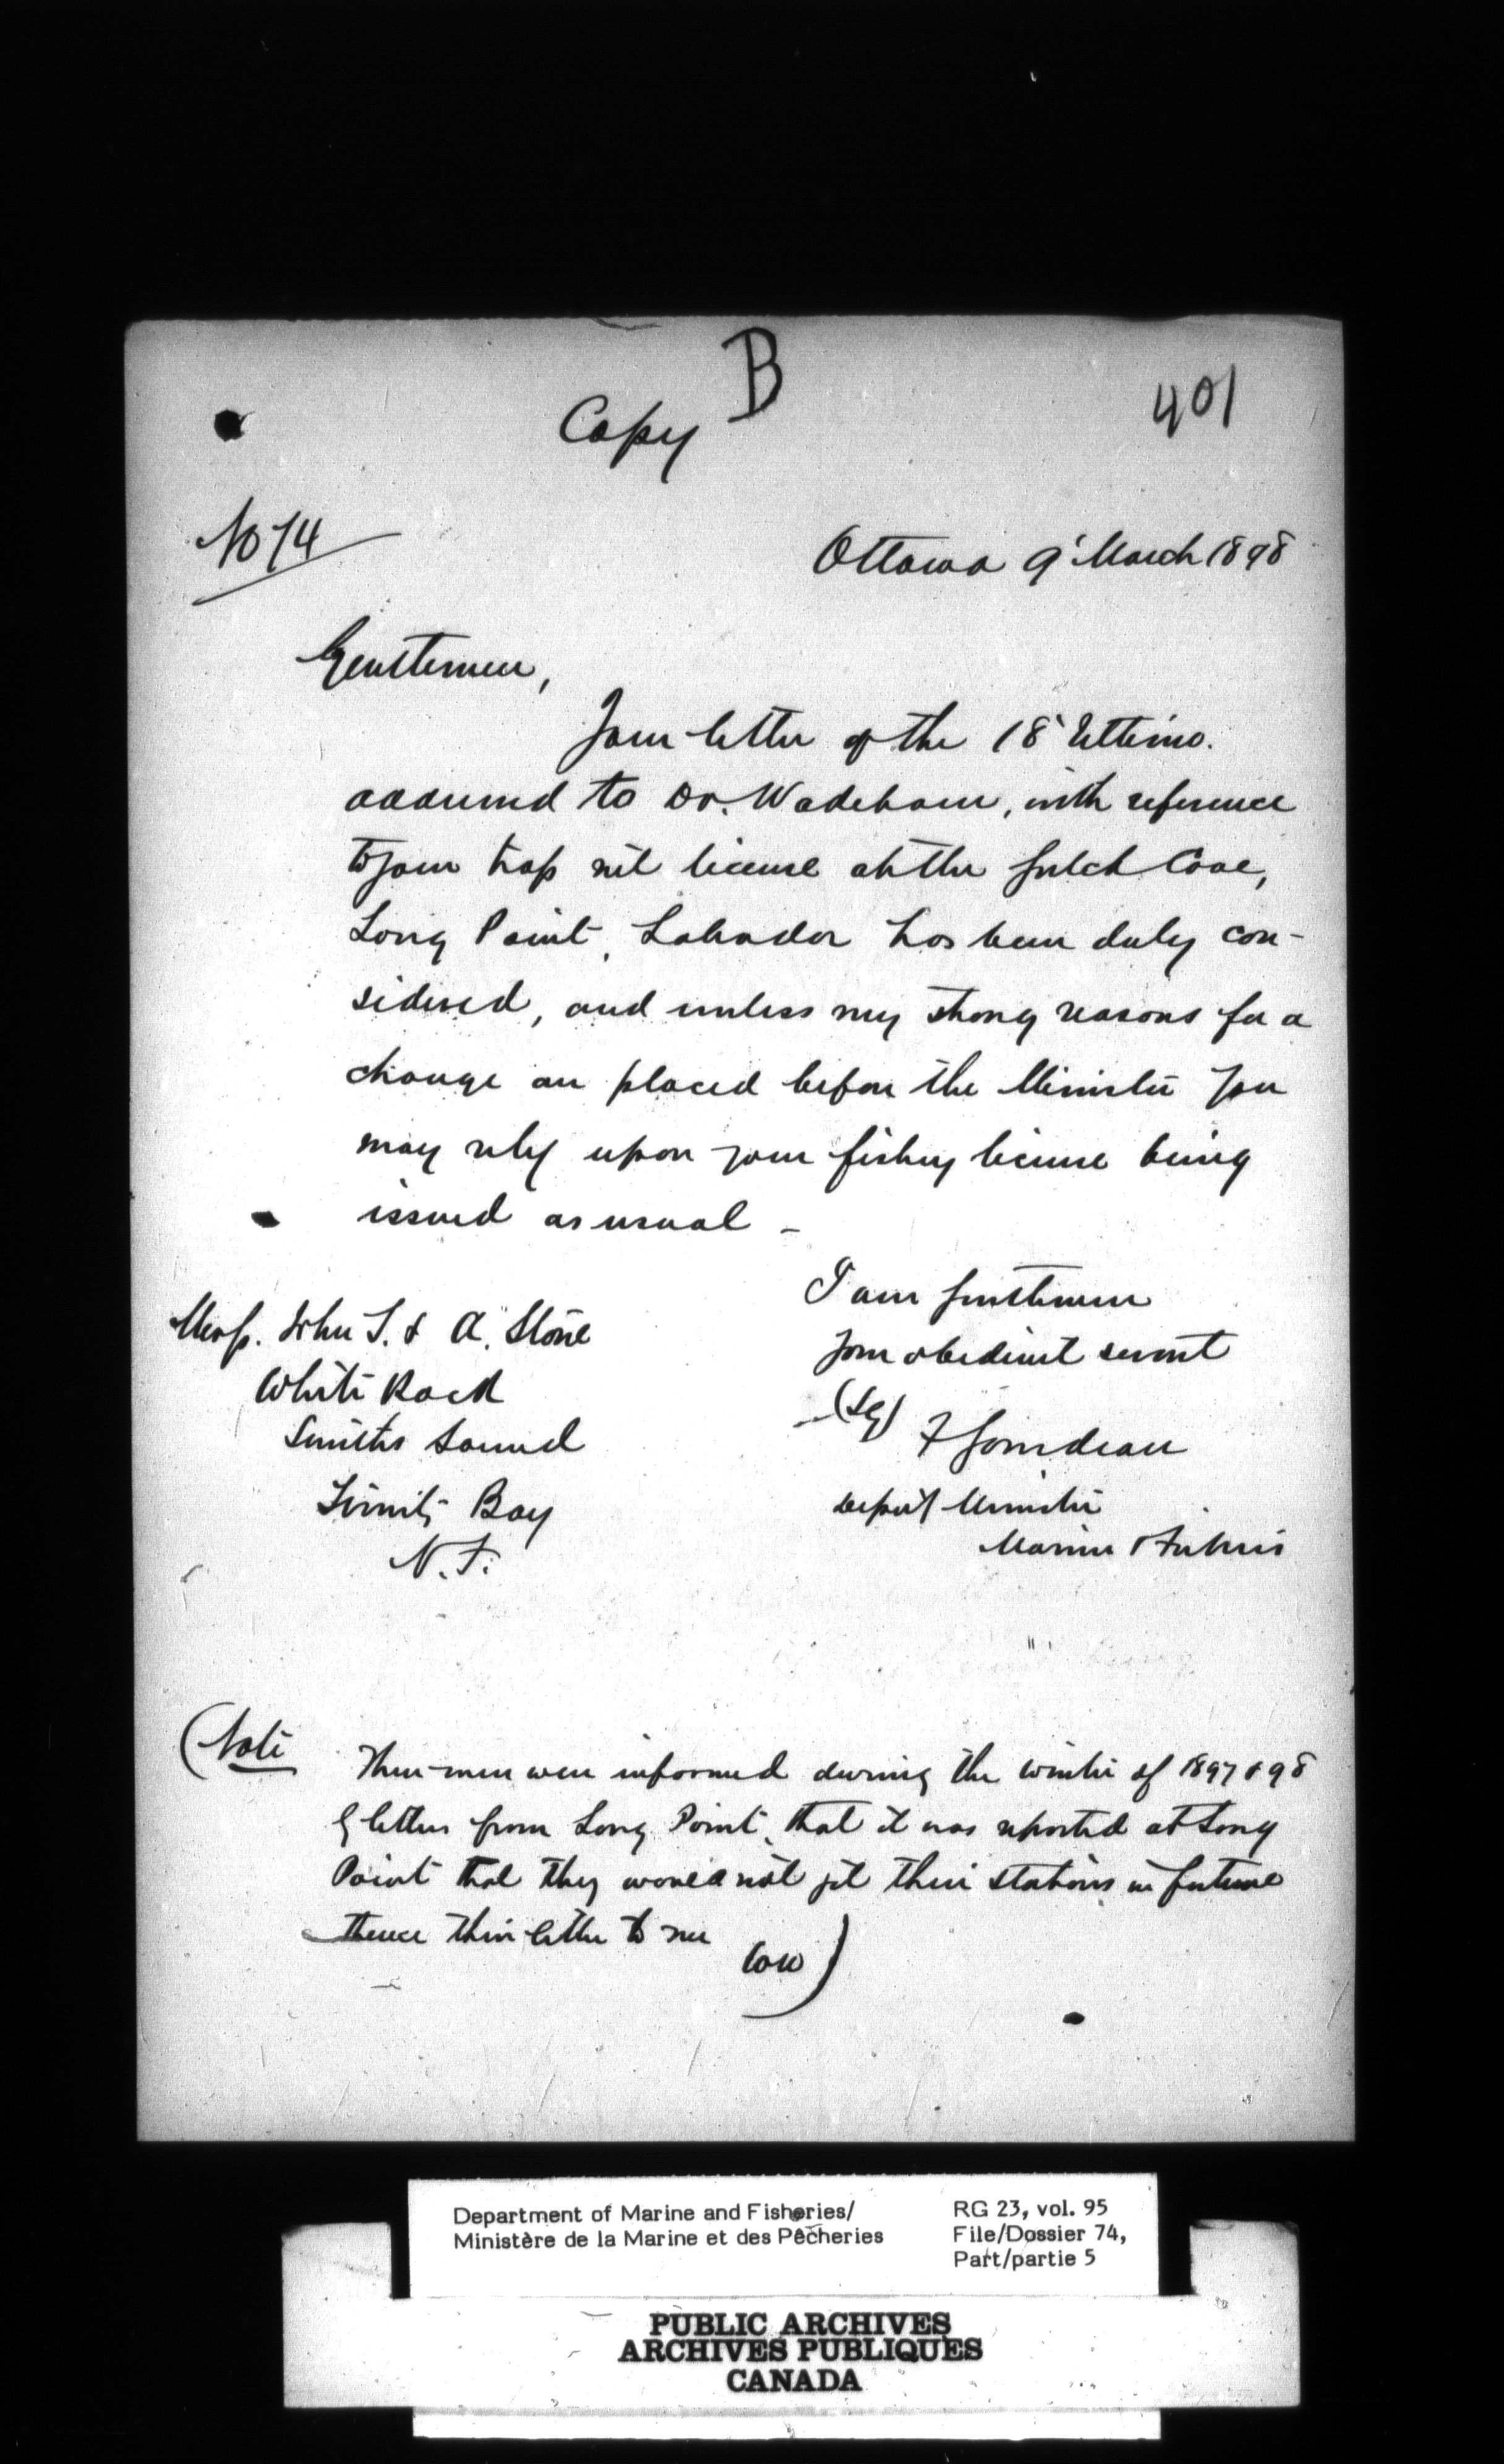 B
401
Copy
No 74
Ottawa 9' March 1898
Gentlemen,
Your letter of the 18' Ultimo.
addressed to Dr. Wakeham, with reference
to your trap net license at the Gulch Cove,
Long Point, Labrador has been duly con-
sidered, and unless very strong reasons for a
change are placed before the Minister you
may rely upon your fishing license being
issued as usual -
I am Gentlemen
your obedient servant
(Sg) F Gourdeau
Deputy Minister
Marine & Fisheries
Messrs. John T. & A. Stone
White Rock
Smiths Sound
Trinity Bay
N.F.
(Note These men were informed during the winter of 1897 & 98
by letters from Long Point, that it was reported at Long
Point that they would not get their stations in future
hence their letter to me
)
Department of Marine and Fisheries/
Ministère de la Marine et des Pêcheries
RG 23, vol. 95
File/Dossier 74,
Part/partie 5
PUBLIC ARCHIVES
ARCHIVES PUBLIQUES
CANADA